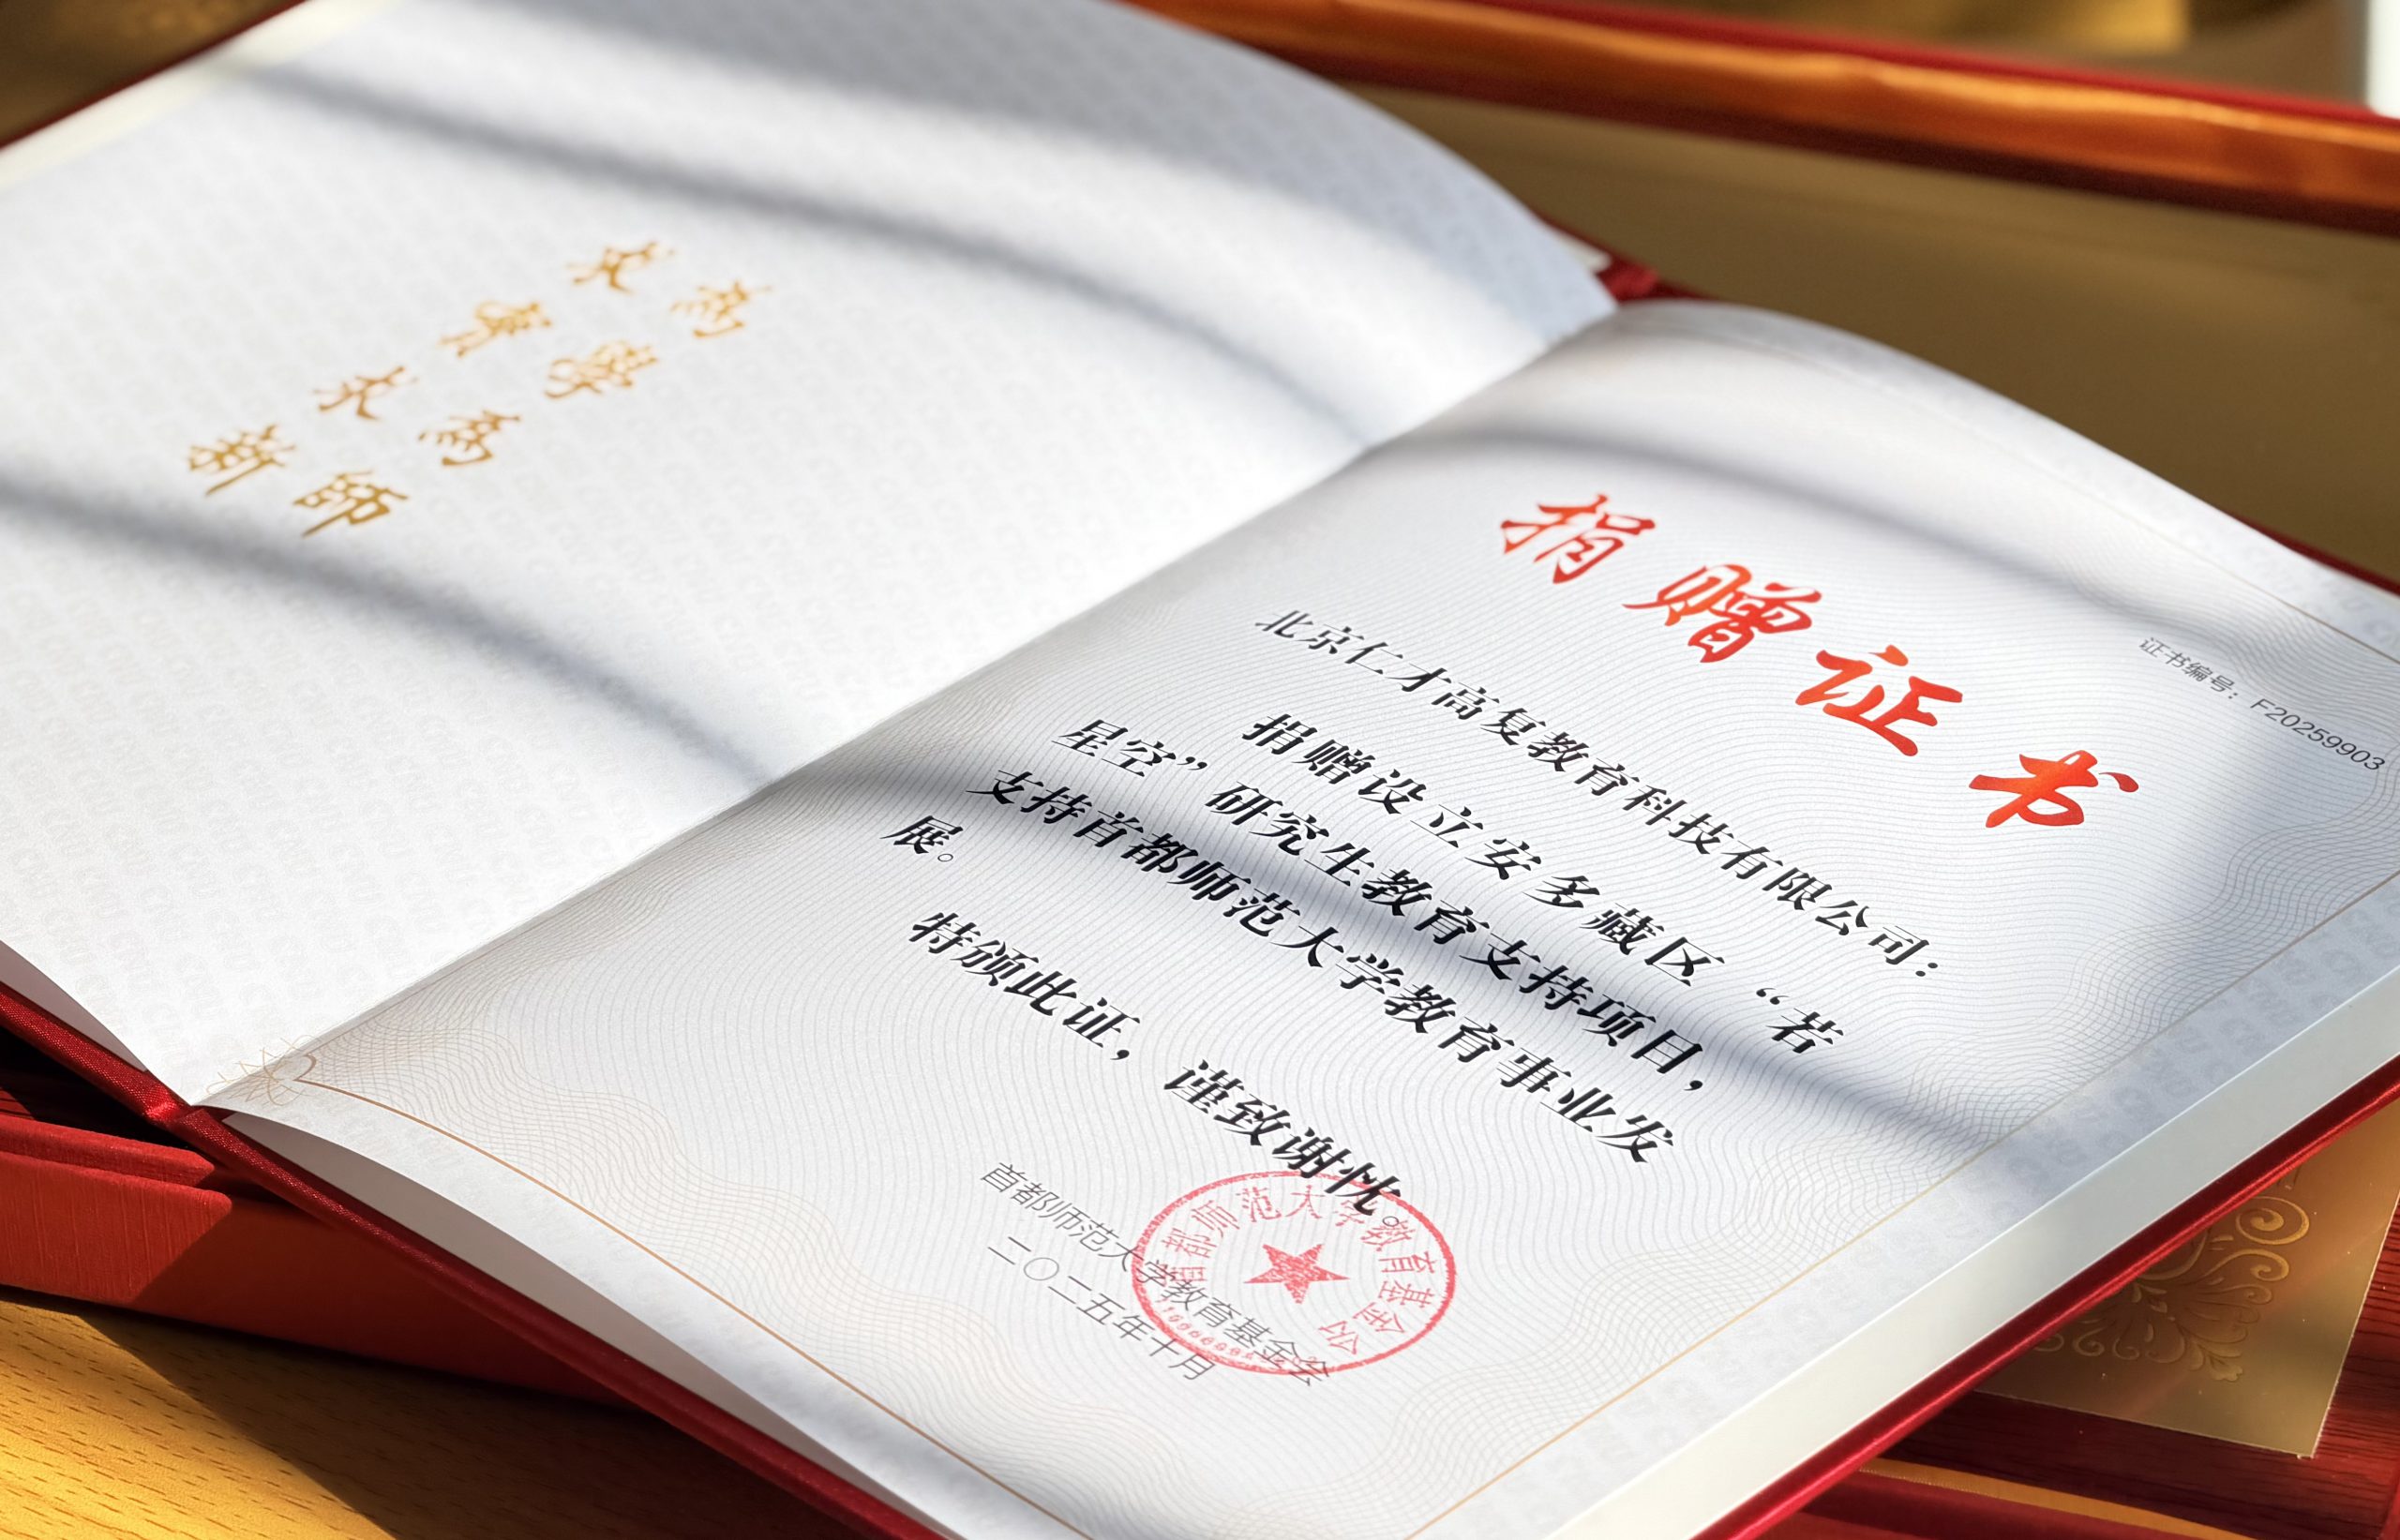 為學為師
求實求新
捐赠证书
证书编号：F20259903
北京仁才高复教育科技有限公司：
捐赠设立安多藏区“若
星空”研究生教育支持项目，
支持首都师范大学教育事业发
展。
特颁此证，谨致谢忱。
首都师范大学教育基金会
二〇二五年十月
首都师范大学教育基金会